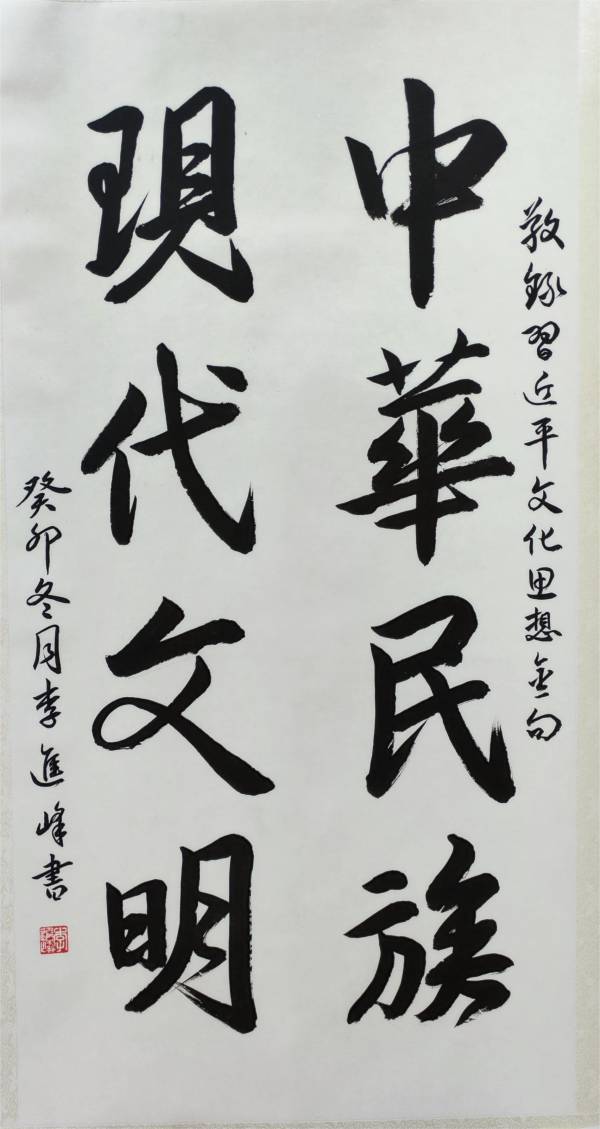 敬錄習近平文化思想金句
中華民族
現代文明
癸卯冬月李進峰書